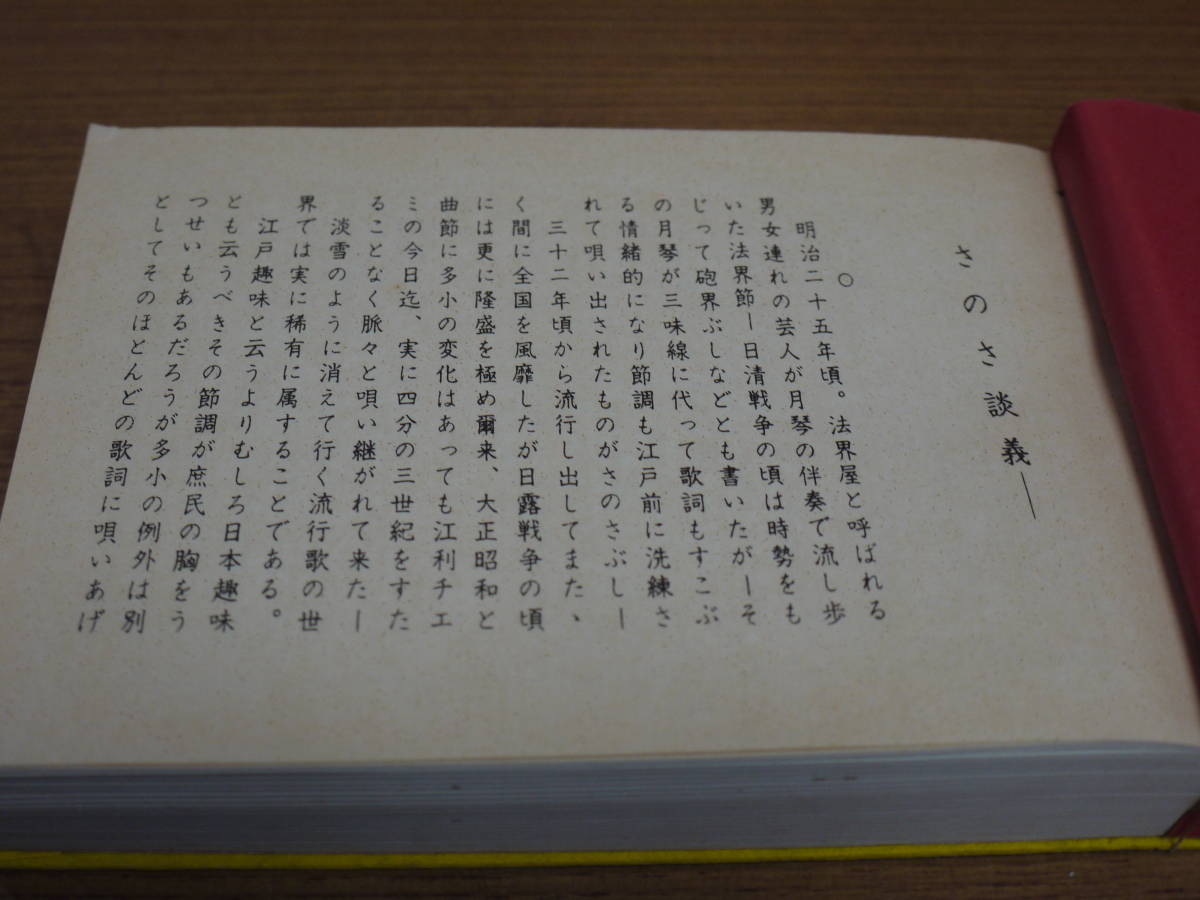 さのさ談義―
○
明治二十五年頃。法界屋と呼ばれる
男女連れの芸人が月琴の伴奏で流し歩
いた法界節―日清戦争の頃は時勢をも
じって砲界ぶしなどとも書いたが―そ
の月琴が三味線に代って歌詞もすこぶ
る情緒的になり節調も江戸前に洗練さ
れて唄い出されたものがさのさぶし―
三十二年頃から流行し出してまた、
く間に全国を風靡したが日露戦争の頃
には更に隆盛を極め爾来、大正昭和と
曲節に多小の変化はあっても江利チエ
ミの今日迄、実に四分の三世紀をすた
ることなく脈々と唄い継がれて来た―
淡雪のように消えて行く流行歌の世
界では実に稀有に属することである。
江戸趣味と云うよりむしろ日本趣味
とも云うべきその節調が庶民の胸をう
つせいもあるだろうが多小の例外は別
としてそのほとんどの歌詞に唄いあげ